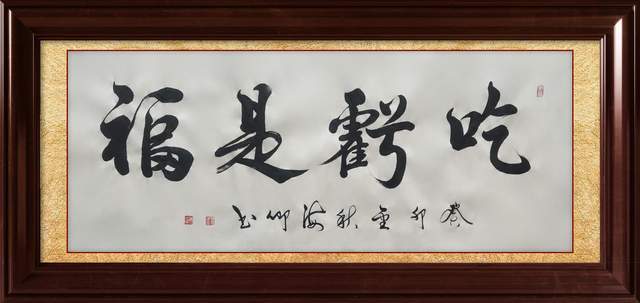 吃虧是福
癸卯金秋海仰书